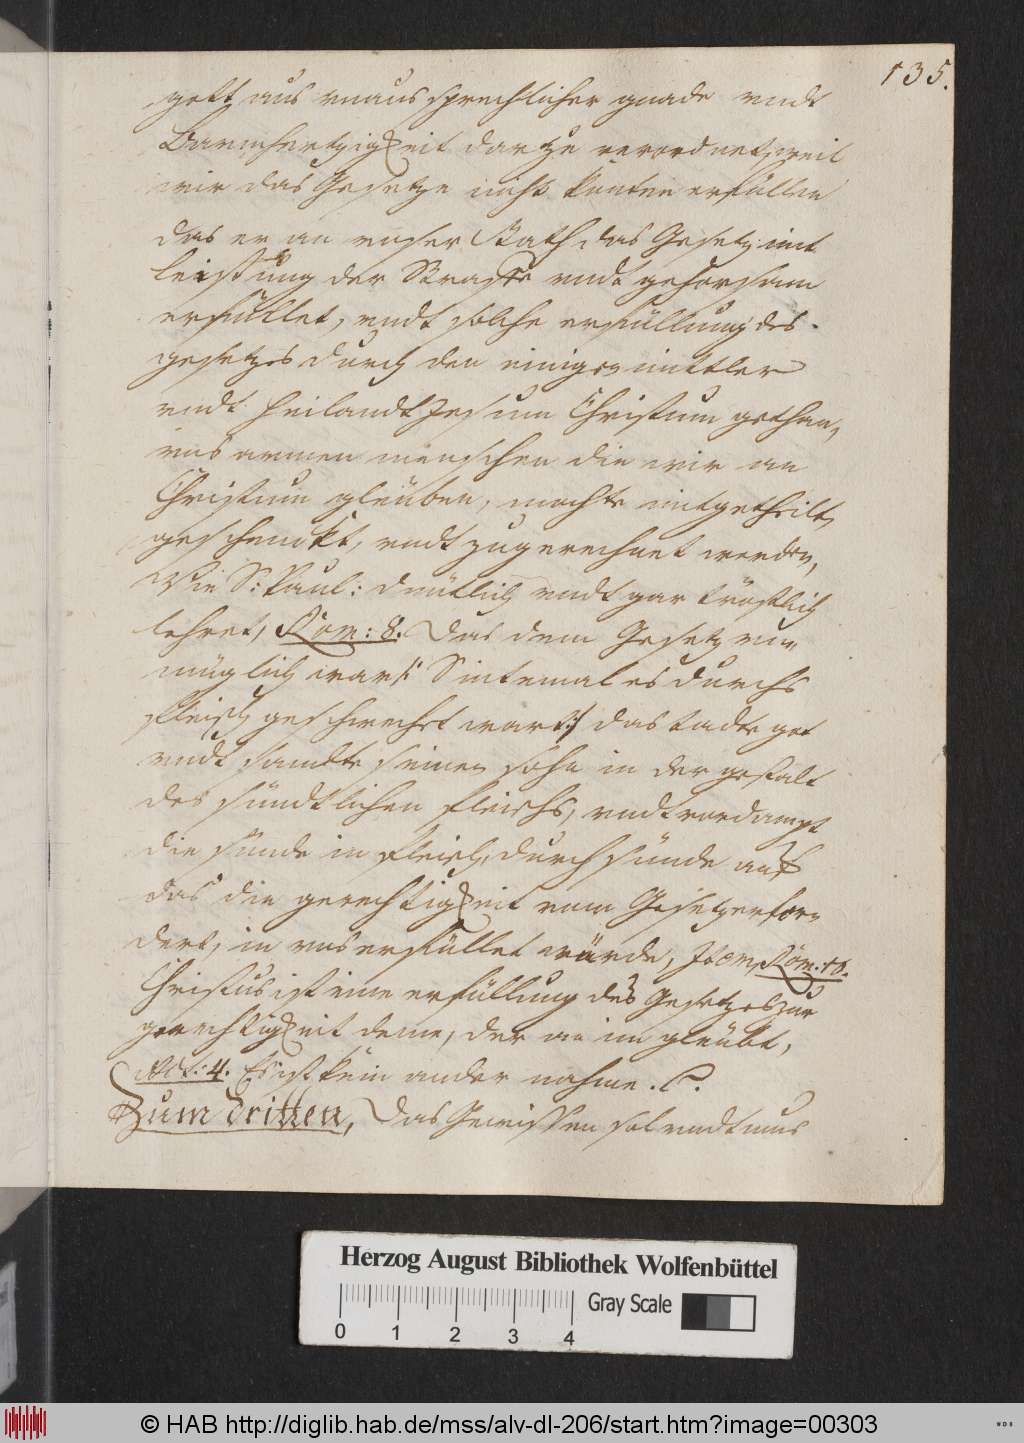 135.
gott aus unaussprechlicher gnade undt
Barmhertzigkeit dartzu verordnet, weil
wir das Gesetze nicht konten erfüllen
das er an unser Stath das Gesetz mit
leistung der Straffe undt gehorsam
erfüllet, undt solche erfüllung des
gesetzes durch den einigen mittler
undt heilandt Jesum Christum gethan,
uns armen menschen die wir an
Christum gleüben, möchte mitgetheilt,
geschenckt, undt zugerechnet werden,
Wie S: Paul: deütlich undt gar tröstlich
lehret, Röm: 8. Das dem Gesetz un„
müglich war /: Sintemal es durchs
fleisch geschwechet wart :/ das tadte got
undt sandte seinen sohn in der gestalt
des sündtlichen fleischs, undt verdampt
die sünde im fleisch, durch sünde auf
das die gerechtigkeit vom Gesetz erfor„
dert, in uns erfüllet würde, Item, Röm. 10.
Christus ist eine erfüllung des Gesetzes zur
gerechtigkeit deme, der an im gleübt,
Act: 4. Es ist kein ander nahme. C.
Zum dritten, Das Gewissen sol undt mus
Herzog August Bibliothek Wolfenbüttel
Gray Scale
0 1 2 3 4
© HAB http://diglib.hab.de/mss/alv-dl-206/start.htm?image=00303